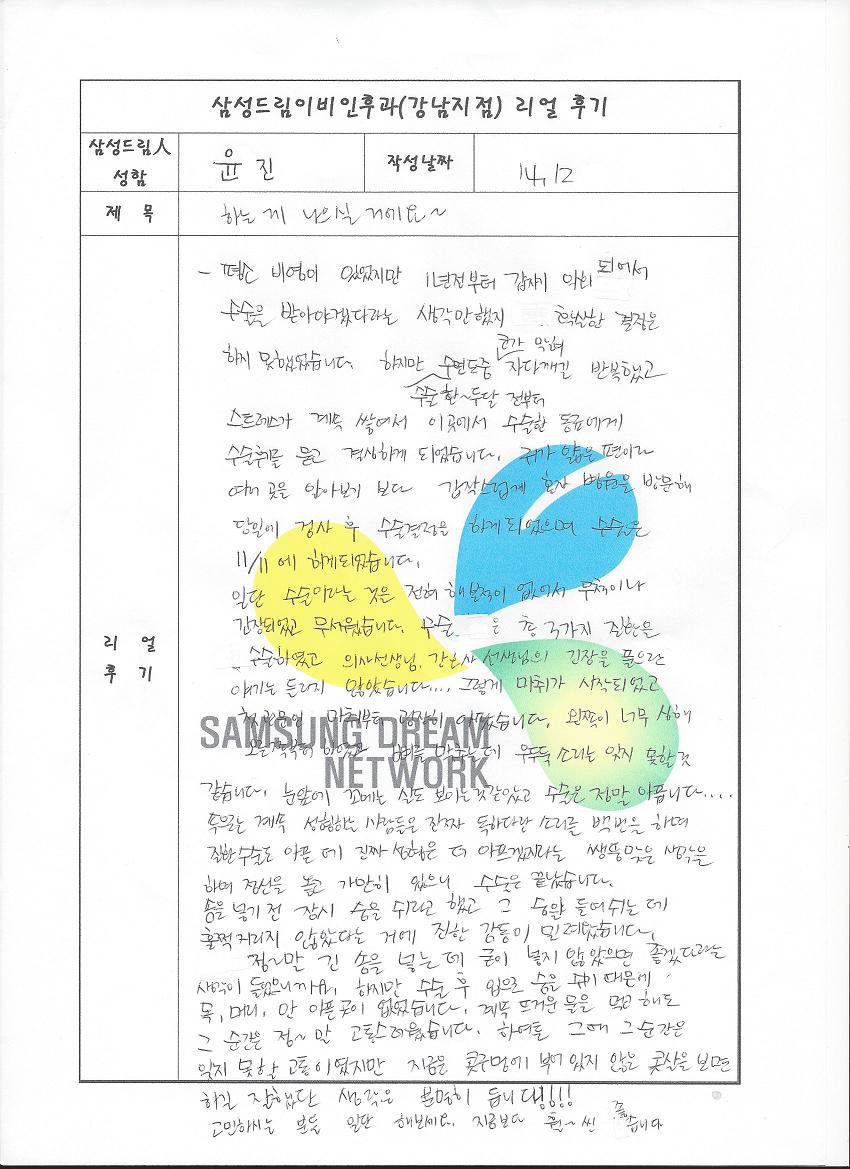 삼성드림이비인후과(강남지점) 리얼 후기
삼성드림人 성함
윤 진
작성날짜
14, 12
제 목
하는 게 나으실 거에요~
리 얼 후 기
- 평소 비염이 있었지만 11년전부터 갑자기 악화 되어서
수술을 받아야겠다라는 생각만했지 확실한 결정은
하지 못했었습니다. 하지만 수면도중 코가 막혀 자다깨길 반복했고
수술 한~두달 전부터
스트레스가 계속 쌓여서 이곳에서 수술한 동료에게
수술후기를 듣고 결심하게 되었습니다. 귀가 얇은 편이라
여러 곳을 알아보기 보다 갑작스럽게 혼자 병원을 방문해
당일에 검사 후 수술결정을 하게 되었으며 수술은
11/11 에 하게되었습니다.
일단 수술이라는 것은 전혀 해본적이 없어서 무척이나
긴장되었고 무서웠습니다. 수술 은 총 3가지 질환을
수술하였고 의사선생님, 간호사 선생님의 긴장을 풀으란
얘기는 들리지 않았습니다.... 그렇게 마취가 시작되었고
마취부터 굉장히 아팠습니다. 왼쪽이 너무 심해
SAMSUNG DREAM
NETWORK
하였고 뼈를 맞추는데 우두둑 소리는 잊지 못할것
같습니다. 눈앞에 꼬메는 실도 보이는것같았고 수술은 정말 아픕니다....
속으로는 계속 성형하는 사람들은 진짜 독하다란 소리를 백번을 하며
질환수술도 아픈 데 진짜 성형은 더 아프겠지라는 쌩뚱맞은 생각을
하며 정신을 놓고 가만히 있으니 수술은 끝났습니다.
솜을 넣기 전 잠시 숨을 쉬라고 했고 그 숨을 들여쉬는 데
훌쩍거리지 않았다는 거에 진한 감동이 밀려왔습니다.
정~말 긴 솜을 넣는 데 굳이 넣지 않았으면 좋겠다라는
생각이 들었으니까요. 하지만 수술 후 입으로 숨을 쉬기 때문에
목, 머리, 안 아픈곳이 없었습니다. 계속 뜨거운 물을 먹고 해도
그 순간은 정~말 고통스러웠습니다. 하여튼 그때 그 순간은
잊지 못할 고통이였지만 지금은 콧구멍에 부어 있지 않은 콧살을 보면
하길 잘했단 생각은 분명히 듭니다!!!!
고민하시는 분들 일단 해보세요. 지금보다 훨~씬 좋습니다